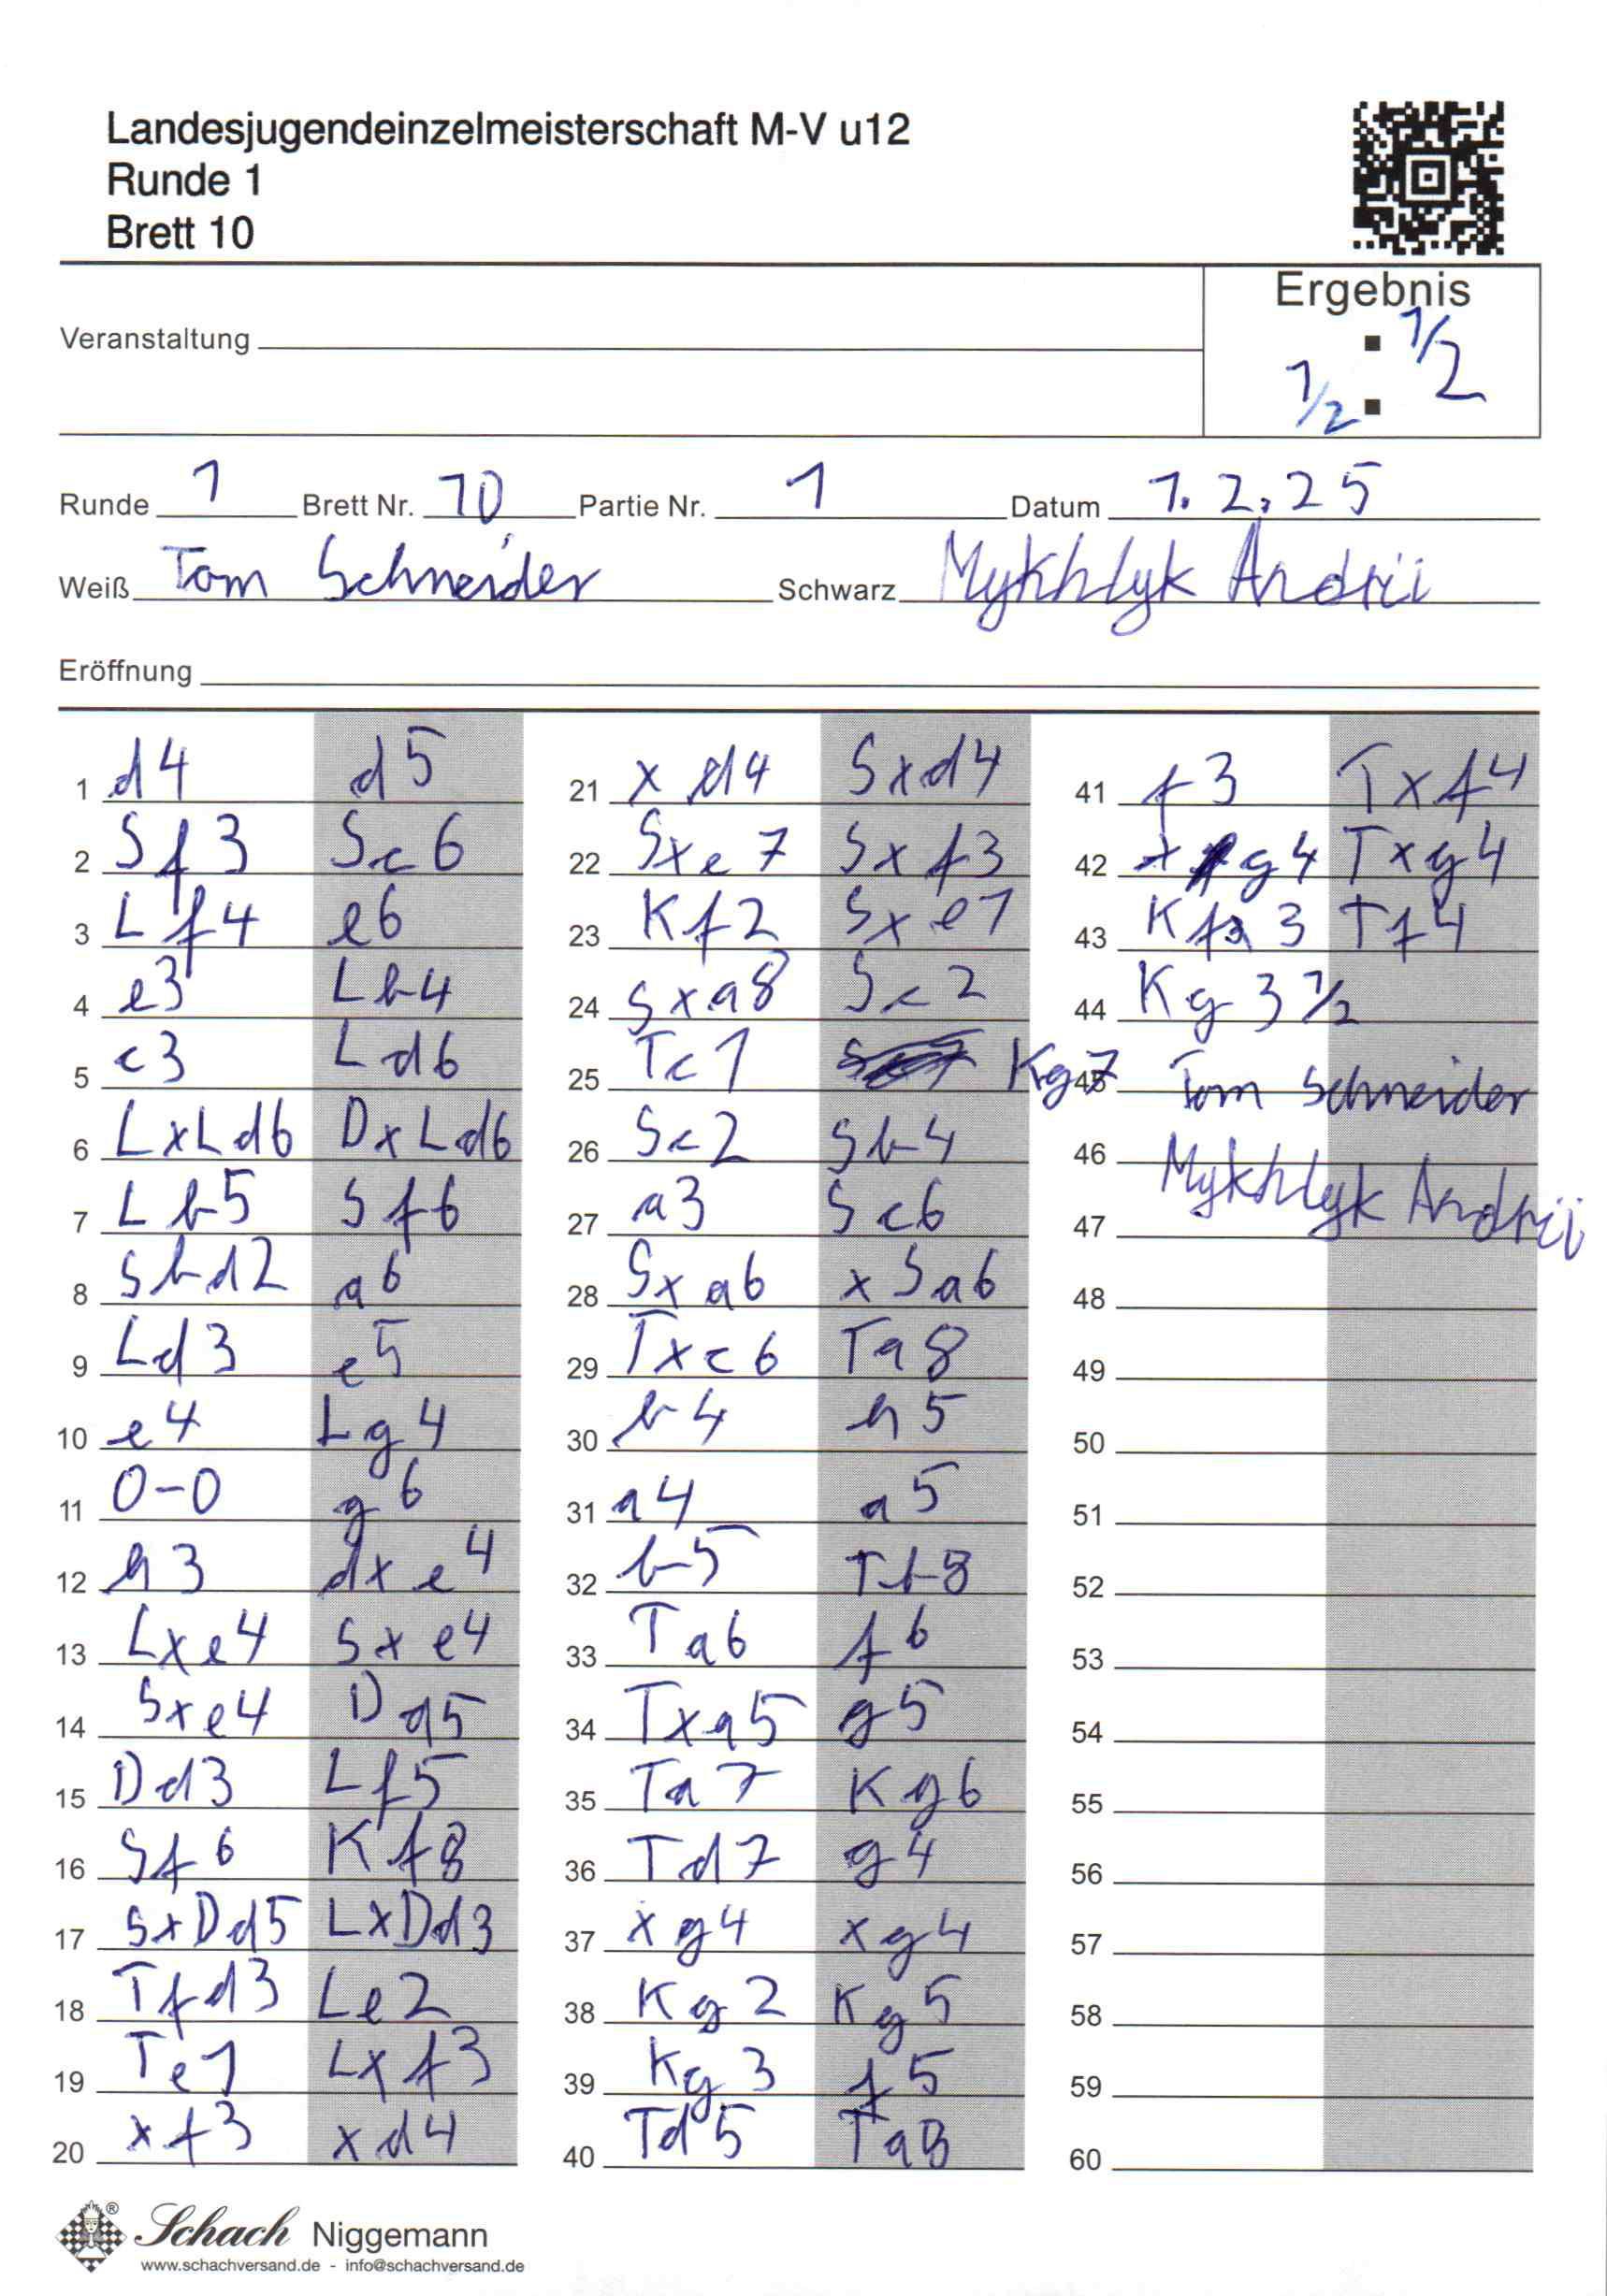 Landesjugendeinzelmeisterschaft M-V u12
Runde 1
Brett 10
Ergebnis
Veranstaltung
1/2 : 1/2
Runde 1 Brett Nr. 10 Partie Nr. 1 Datum 1.2.25
Weiß Tom Schneider Schwarz Mykhlyk Andrii
Eröffnung
1 d4 d5
2 Sf3 Sc6
3 Lf4 e6
4 e3 Lb4
5 c3 Ld6
6 LxLd6 DxLd6
7 Lb5 Sf6
8 Sbd2 a6
9 Ld3 e5
10 e4 Lg4
11 0-0 g6
12 h3 dxe4
13 Lxe4 Sxe4
14 Sxe4 Dd5
15 Dd3 Lf5
16 Sf6 Kf8
17 SxDd5 LxDd3
18 Tfd3 Le2
19 Te1 Lxf3
20 xf3 xd4
21 xd4 Sxd4
22 Sxe7 Sxf3
23 Kf2 Sxe1
24 Sxa8 Sc2
25 Tc1 Kg7
26 Sc2 Sb4
27 a3 Sc6
28 Sxa6 xSa6
29 Txc6 Ta8
30 b4 h5
31 a4 a5
32 b5 Tb8
33 Ta6 f6
34 Txa5 g5
35 Ta7 Kg6
36 Td7 g4
37 xg4 xg4
38 Kg2 Kg5
39 Kg3 f5
40 Td5 Ta8
41 f3 Txf4
42 xg4 Txg4
43 Kf3 Tf4
44 Kg3 1/2
45 Tom Schneider
46 Mykhlyk Andrii
47
48
49
50
51
52
53
54
55
56
57
58
59
60
Schach Niggemann
www.schachversand.de - info@schachversand.de